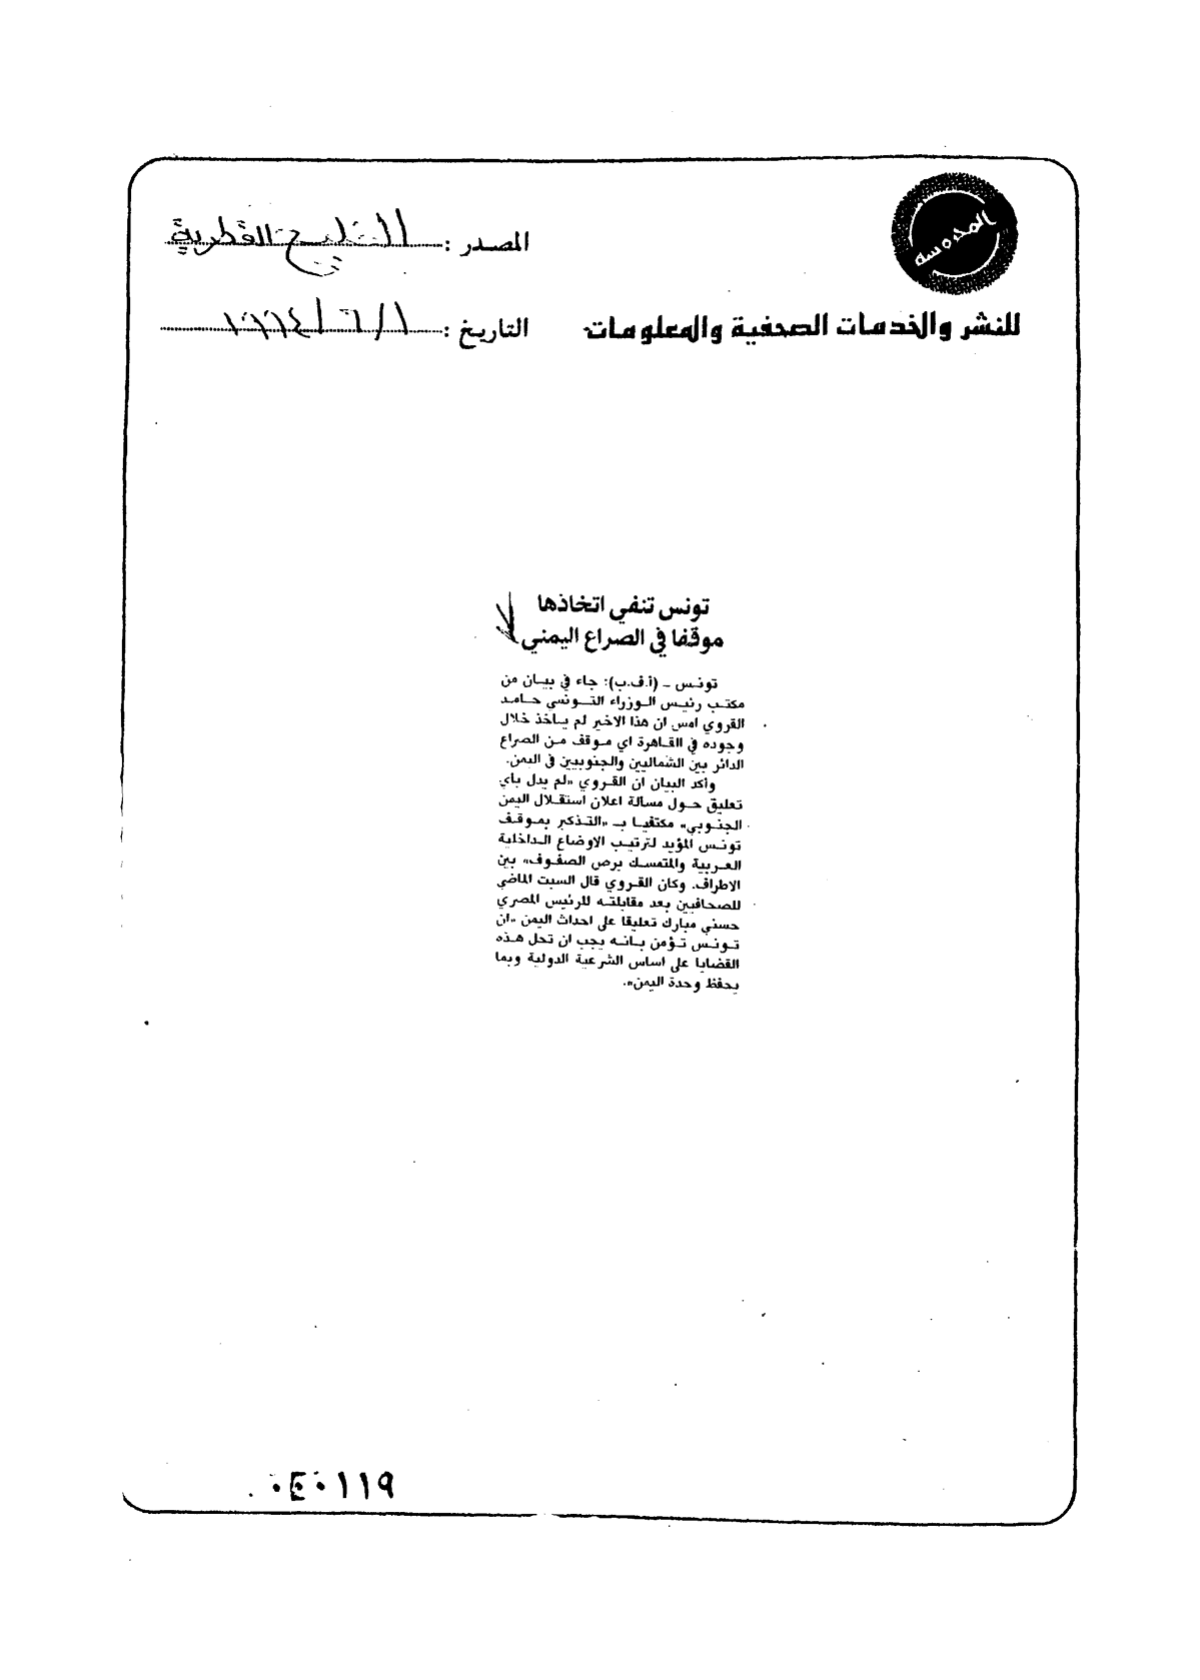 المحروسة
المصدر : الخليج القطرية
للنشر والخدمات الصحفية والمعلومات
التاريخ : ١/٦/١٩٩٤
تونس تنفي اتخاذها
موقفا في الصراع اليمني
تونس - (أ.ف.ب): جاء في بيان من
مكتب رئيس الوزراء التونسي حامد
القروي امس ان هذا الاخير لم ياخذ خلال
وجوده في القاهرة اي موقف من الصراع
الدائر بين الشماليين والجنوبيين في اليمن.
واكد البيان ان القروي «لم يدل باي
تعليق حول مسالة اعلان استقلال اليمن
الجنوبي» مكتفيا بـ «التذكير بموقف
تونس المؤيد لترتيب الاوضاع الداخلية
العربية والمتمسك برص الصفوف» بين
الاطراف. وكان القروي قال السبت الماضي
للصحافيين بعد مقابلته للرئيس المصري
حسني مبارك تعليقا على احداث اليمن «ان
تونس تؤمن بانه يجب ان تحل هذه
القضايا على اساس الشرعية الدولية وبما
يحفظ وحدة اليمن».
٠٤٠١١٩